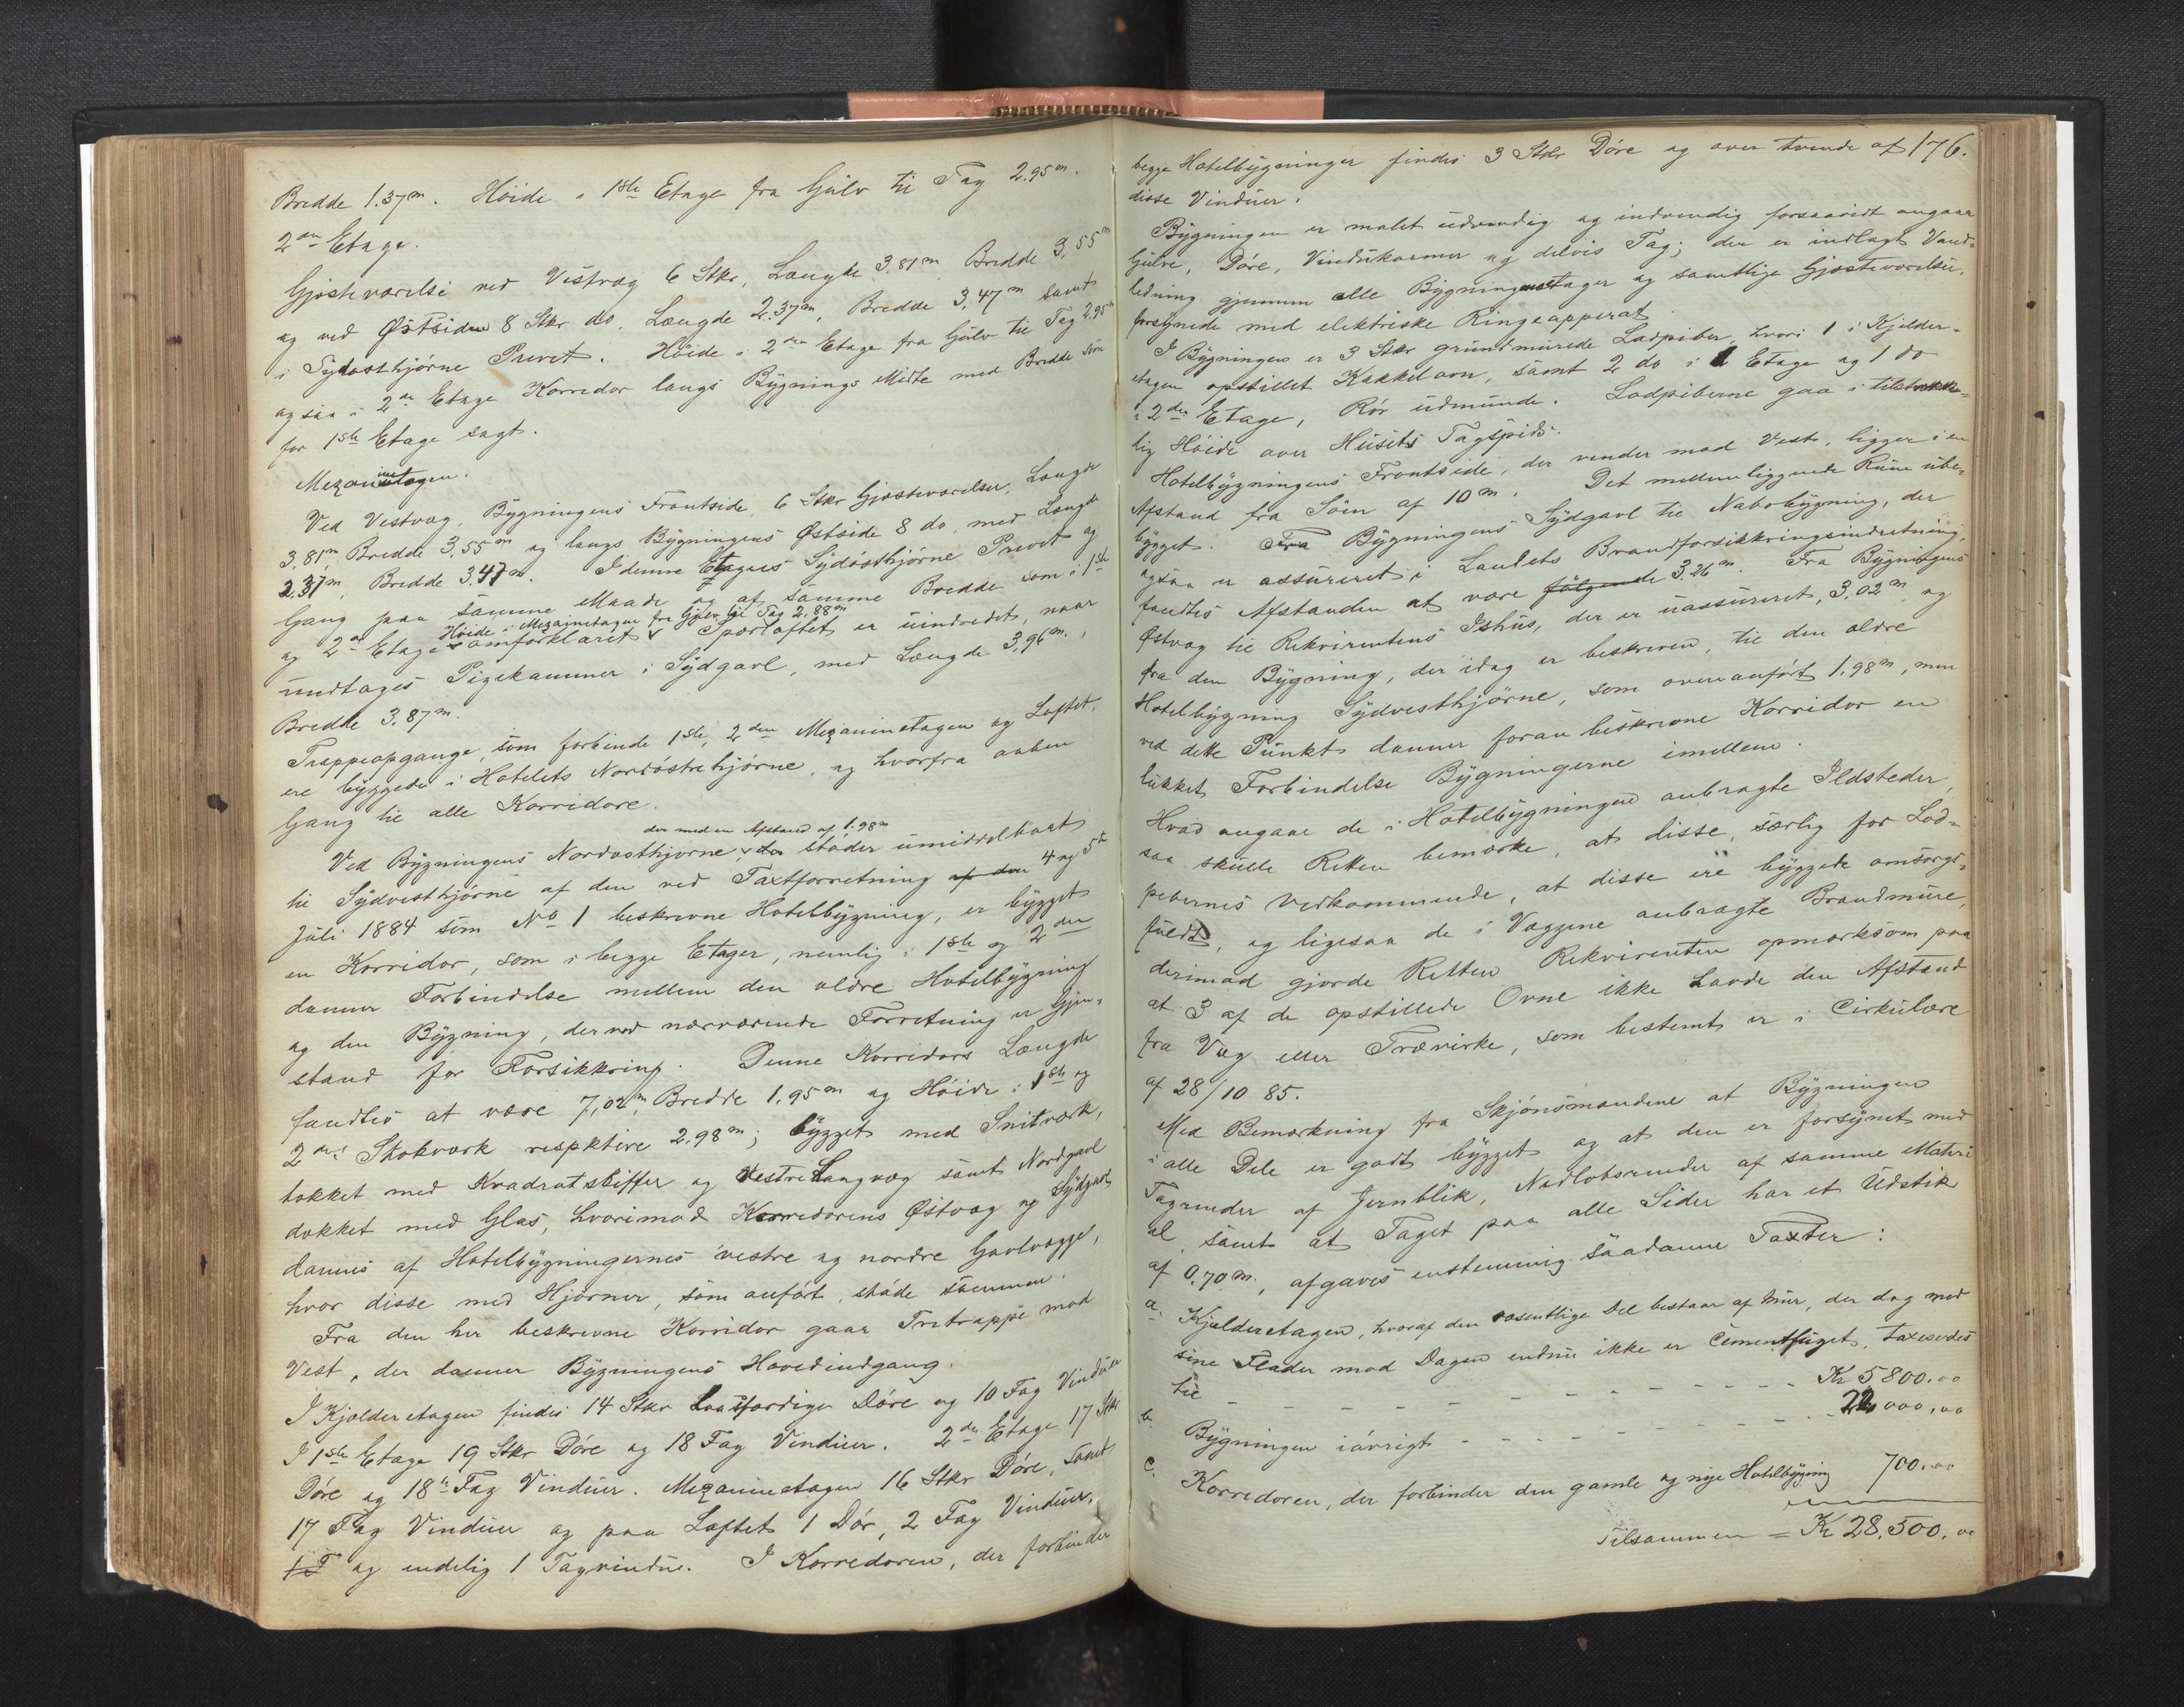 Bredde 1.37m. Höide i 1ste Etage fra Gulv til Tag 2.95m.
2den Etage.
Gjæsteværelse ved Vestvæg 6 Stkr, Længde 3,81m Bredde 3,55m
og ved Østsiden 8 Stkr do. Længde 2.37m, Bredde 3,47m samt
i Sydosthjørne Privet. Höide i 2den Etage fra Gulv til Tag 2.95m
ogsaa i 2den Etage Korridor langs Bygnings Midte med Bredde som
for 1ste Etage sagt.
Mezaninetagen.
Ved Vestvæg, Bygningens Frontside, 6 Stkr Gjæsteværelser, Længde
3,81m Bredde 3,55m og langs Bygningens Østside 8 do. med Længde
2,37m, Bredde 3,47m. I denne Etages Sydösthjørne Privet og
Gang paa samme Maade og af samme Bredde som i 1ste
Höide i Mezaninetagen fra Gulv til Tag 2,88m
og 2den Etage omforklaret. Spærloftet er uindredet, naar
undtages Pigekammer i Sydgavl, med Længde 3,96m.,
Bredde 3,87m.
Trappeopgange, som forbinde 1ste, 2den Mezaninetagen og Loftet,
ere byggede i Hotelets Nordöstrehjørne, og hvorfra aaben
Gang til alle Korridore.
der med en Afstand af 1.98m
Ved Bygningens Nordvesthjørne, der støder umiddelbart
til Sydvesthjørne af den ved Taxtforretning af den 4 og 5te
Juli 1884 som No 1 beskrevne Hotelbygning, er bygget
en Korridor, som i begge Etager, nemlig i 1ste og 2den
danner Forbindelse mellem den ældre Hotelbygning
og den Bygning, der ved nærværende Forretning er Gjen-
stand for Forsikkring. Denne Korridors Længde
fandtes at være 7,02m, Bredde 1.95m og Höide i 1ste og
2den Stokværk respktive 2.98m; bygget med Snitværk,
tækket med Kvadratskiffer og Vestre Langvæg samt Nordgavl
dækket med Glas, hvorimod Korredorens Østvæg og Sydgavl
dannes af Hotelbygningernes vestre og nordre Gavlvægge,
hvor disse med Hjørner, som anført, støde sammen.
Fra den her beskrevne Korridor gaar Trætrappe mod
Vest, der danner Bygningens Hovedindgang.
I Kjælderetagen findes 14 Stkr Laasfærdige Döre og 10 Fag Vinduer
I 1ste Etage 19 Stkr Döre og 18 Fag Vinduer. 2den Etage 17 Stkr
Döre og 18 Fag Vinduer. Mezaninetagen 16 Stkr Döre, samt
17 Fag Vinduer og paa Loftet 1 Dör, 2 Fag Vinduer,
1 F og endelig 1 Tagvindue. I Korredoren, der forbinder
176.
begge Hotelbygninger findes 3 Stkr Döre og over tvende af
disse Vinduer.
Bygningen er malet udvendig og indvendig forsaavidt angaar
Gulve, Döre, Vinduskarmer og delvis Tag; der er indlagt Vand-
ledning gjennem alle Bygningsetager og samtlige Gjæsteværelser,
forsynede med elektriske Ringeapperat.
I Bygningen er 3 Stkr grundmurede Ladpiber, hvori 1 i Kjelder-
etagen opstillet Kakkelovn, samt 2 do i 1 Etage og 1 do
i 2den Etage, Rör udmunde. Ladpiberne gaa i tilstrække-
lig Höide over Husets Tagspids.
Hotelbygningens Frontside, der vender mod Vest, ligger i en
Afstand fra Söen af 10m. Det mellemliggende Rum ube-
bygget. Fra Bygningens Sydgavl til Nabobygning, der
ogsaa er assureret i Landets Brandforsikkringsindretning,
fandtes Afstanden at være følgende 3,26m. Fra Bygningens
Østvæg til Rekvirentens Ishus, der er uassureret, 3,02m og
fra den Bygning, der idag er beskreven, til den ældre
Hotelbygning Sydvesthjørne, som ovenanført 1.98m, men
ved dette Punkt danner foran beskrevne Korridor en
lukket Forbindelse Bygningerne imellem.
Hvad angaar de i Hotelbygningen anbragte Ildsteder,
saa skulle Retten bemærke, at disse, særlig for Lad-
pibernes Vedkommende, at disse ere byggede omsorgs-
fuldt, og ligesaa de i Væggene anbragte Brandmure,
derimod gjorde Retten Rekvirenten opmærksom paa
at 3 af de opstillede Ovne ikke havde den Afstand
fra Væg eller Trævirke, som bestemt er i Cirkulære
af 28/10 85.
Med Bemærkning fra Skjönsmændene at Bygningen
i alle Dele er godt bygget og at den er forsynet med
Tagrender af Jernblik, Nedløbsrender af samme Materi
al, samt at Taget paa alle Sider har et Udstik
af 0.70m., afgaves enstemmig saadanne Taxter:
a. Kjelderetagen, hvoraf den væsentlige Del bestaar af Mur, der dog med
sine Flader mod Dagen endnu ikke er Cementfuget, taxeredes
til - - - - - - - - - - - - Kr 5800.00
b. Bygningen iövrigt - - - - - - - - - - 22000,00
c. Korredoren, der forbinder den gamle og nye Hotelbygning 700.00
Tilsammen = Kr 28,500.00